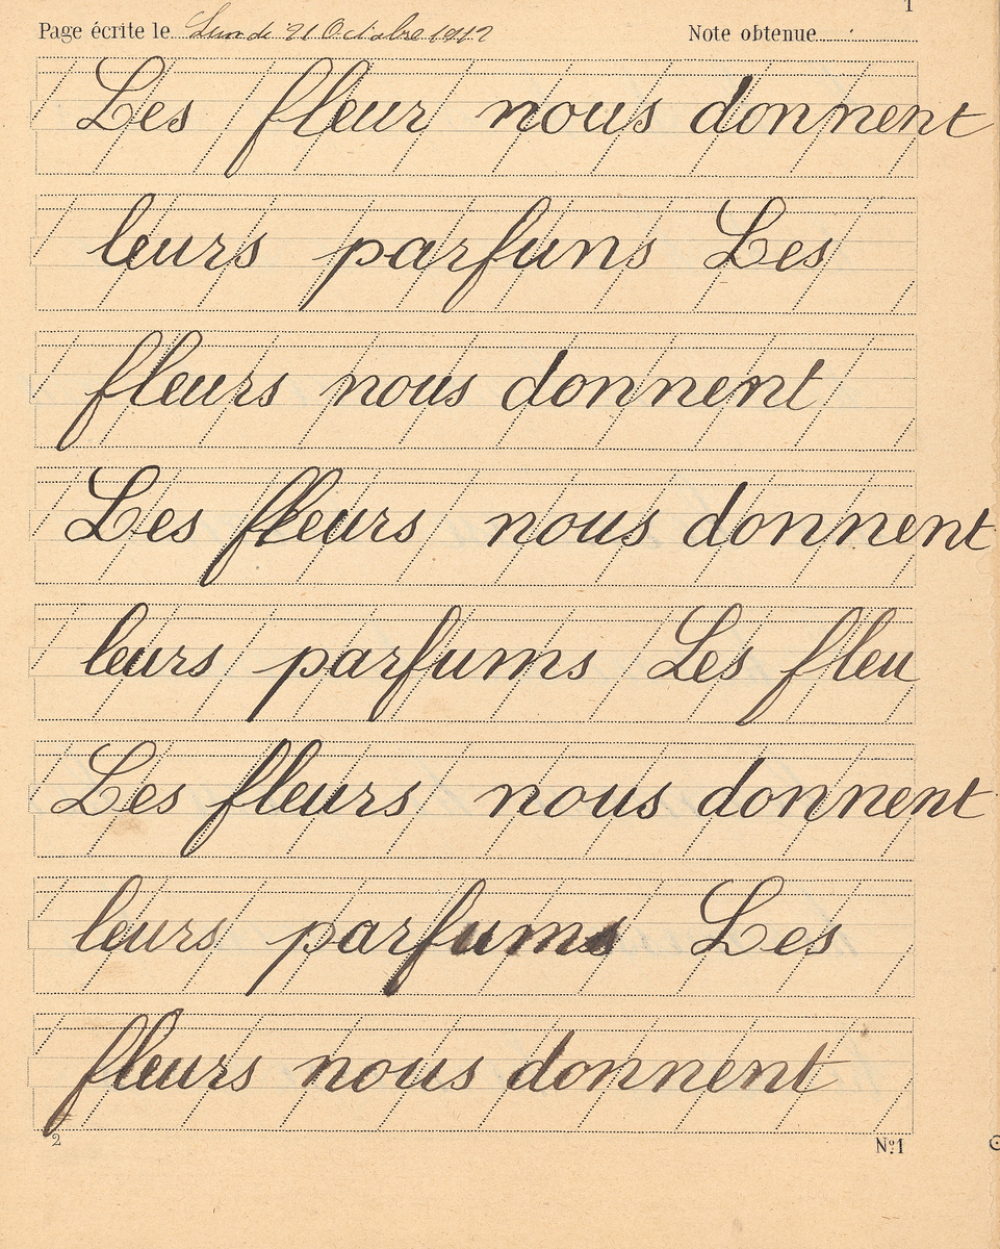 1
Page écrite le Lundi 21 Octobre 1912 Note obtenue
Les fleur nous donnent
leurs parfuns Les
fleurs nous donnent
Les fleurs nous donnent
leurs parfums Les fleu
Les fleurs nous donnent
leurs parfums Les
fleurs nous donnent
2 Nº1